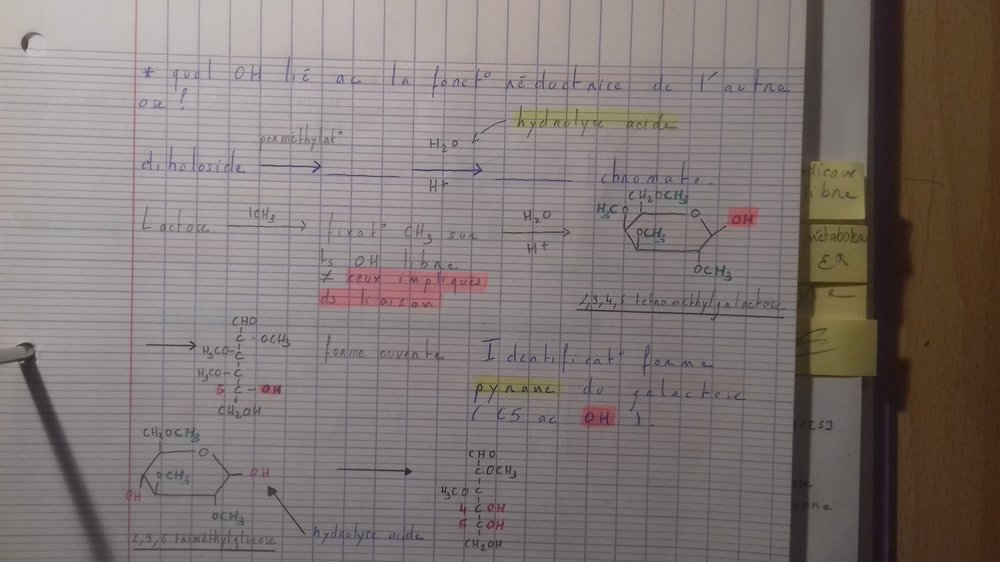 * quel OH lié ac la fonct° réductrice de l'autre
ose ?
hydrolyse acide
perméthylat°
H2O
diholoside
H+
chromato.
CH2OCH3
H3CO
O
OH
OCH3
OCH3
Lactose
ICH3
fixat° CH3 sur
ts OH libre
≠ ceux impliqués
ds liaison
H2O
H+
2,3,4,6 tetramethylgalactose
CHO
C - OCH3
H3CO - C
H3CO - C
5 C - OH
CH2OH
forme ouverte
Identificat° forme
pyrane du galactose
( C5 ac OH ).
CH2OCH3
O
OCH3
OH
OH
OCH3
2,3,6 trimethylglucose
hydrolyse acide
CHO
C OCH3
H3CO C
4 C OH
5 C OH
CH2OH
dicaux
libre
métabolism